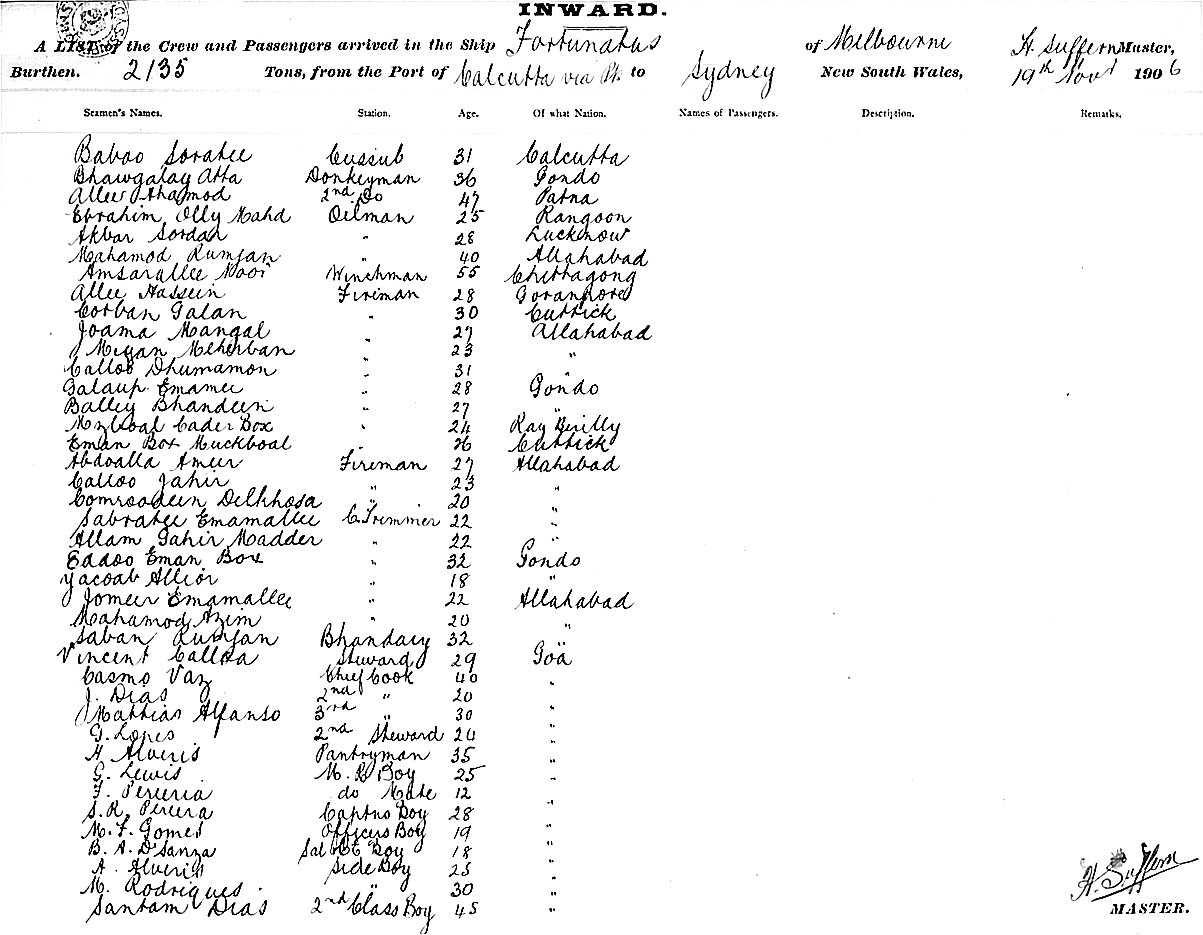 INWARD.
A LIST of the Crew and Passengers arrived in the Ship Fortunatus of Melbourne H. Suffern Master,
Burthen. 2135 Tons, from the Port of Calcutta via Pt. to Sydney New South Wales, 19th Novr 1906
Seamen's Names. Station. Age. Of what Nation. Names of Passengers. Description. Remarks.
Baboo Soratee Cussub 31 Calcutta
Bhawgalay Atta Donkeyman 36 Gondo
Allee 2nd Do 47 Patna
Ebrahim Olly Mahd Oilman 25 Rangoon
Akbar Sordar " 28 Lucknow
Mahamod Rumjan " 40 Allahabad
Amsarallee Noor Winchman 55 Chittagong
Allee Hassein Fireman 28
Corban Galan " 30 Cuttick
Joama Mangal " 27 Allahabad
Megan Meherban " 23 "
Calloo Dhumamon " 31 "
Galaup Emamee " 28 Gondo
Balley Bhandeen " 27 "
Cader Box " 24 Ray Berilly
Eman Box Muckboal " 26 Cuttick
Abdoalla Ameer Fireman 27 Allahabad
Calloo Jahir " 23 "
Comroodeen Delkhosa " 20 "
Sabratee Emamallee C. Trimmer 22 "
Allam Gahir Madder " 22 "
Eadoo Eman Box " 32 Gondo
Yacoab Allior " 18 "
Jomeer Emamallee " 22 Allahabad
Mahamod Azim " 20 "
Saban Rumjan Bhandary 32 "
Vincent Steward 29 Goa
Casmo Vaz Chief Cook 40 "
J. Dias 2nd " 20 "
Mathias Alfanso 3rd " 30 "
G. Lopes 2nd Steward 24 "
H Alveris Pantryman 35 "
G. Lewis M. R Boy 25 "
F. Pereria do Mate 12 "
S. R. Pereira Captns Boy 28 "
M. F. Gomes Officers Boy 19 "
B. A. D'Sanza Boy 18 "
A. Alveris Side Boy 25 "
M. Rodrigues " 30 "
Santam Dias 2nd Class Boy 45 "
H. Suffern
MASTER.